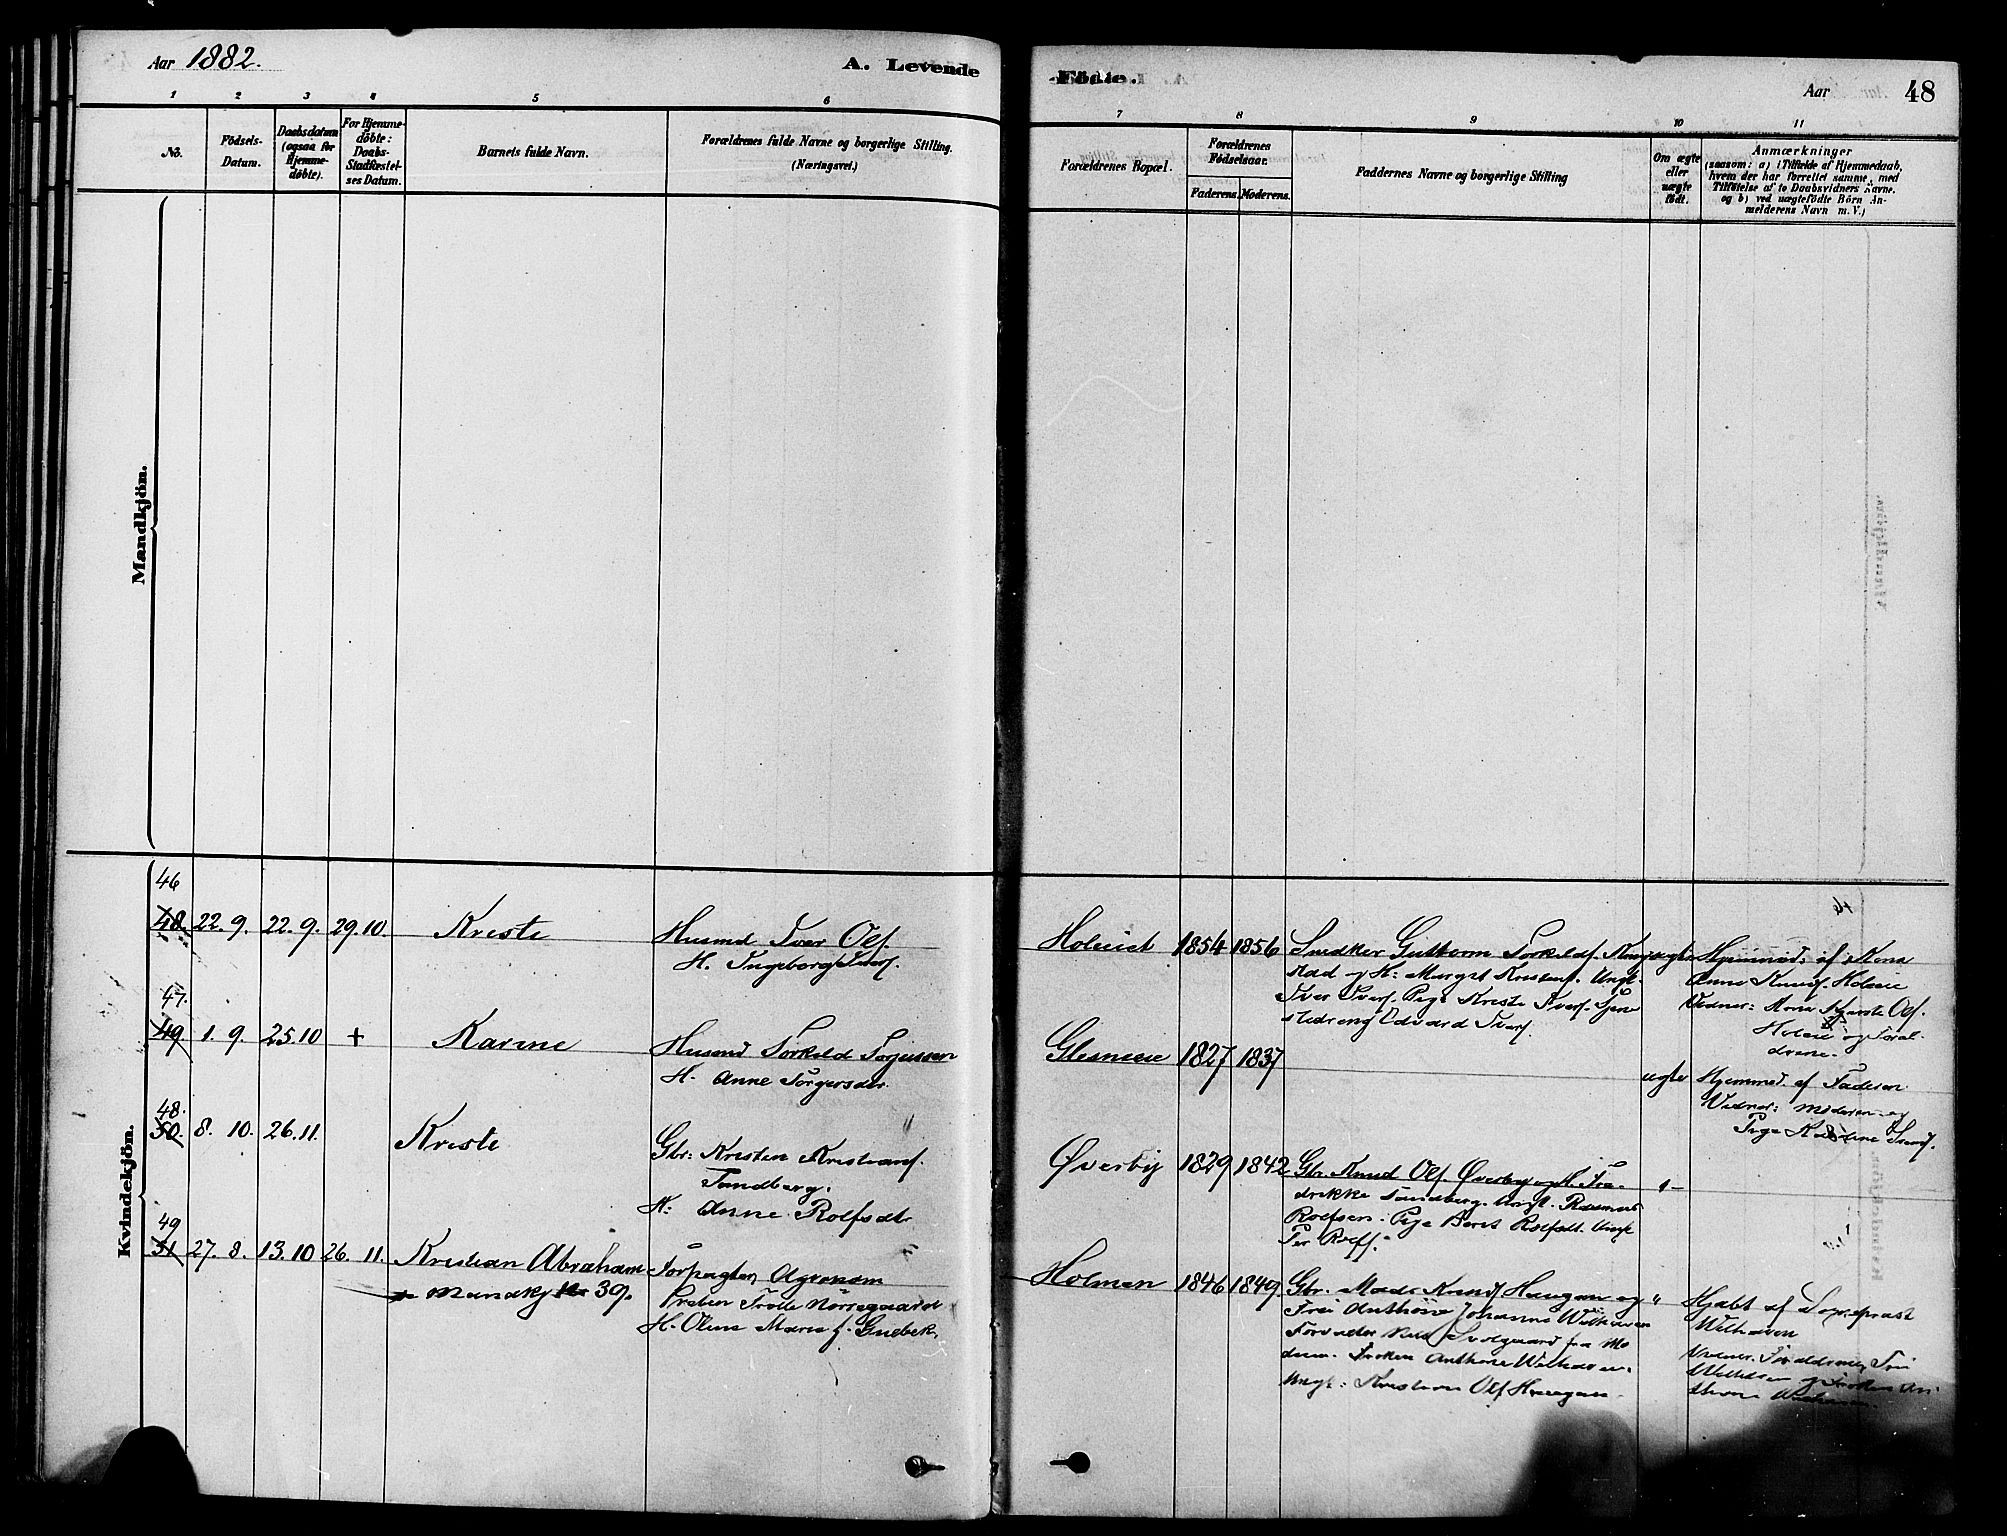 Aar 1882.
A. Levende
Födte.
Aar
48
1
2
3
4
5
6
7
8
9
10
11
No.
Födsels-
Datum.
Daabsdatum
(ogsaa for
Hjemme-
döbte).
For Hjemme-
döbte:
Daabs-
Stadfæstel-
ses Datum.
Barnets fulde Navn.
Forældrenes fulde Navne og borgerlige Stilling.
(Næringsvei.)
Forældrenes Bopæl.
Forældrenes
Födselsaar.
Faderens.
Moderens.
Faddernes Navne og borgerlige Stilling
Om ægte
eller
uægte
födt.
Anmærkninger
(saasom: a) i Tilfælde af Hjemmedaab,
hvem der har forrettet samme, med
Tilföielse af to Daabsvidners Navne.
og b) ved uægtefödte Börn An-
melderens Navn m. V.)
Mandkjön.
Kvindekjön.
46
48. 22. 9. 22. 9. 29. 10. Kreste
Husmd Iver Ols.
H. Ingeborg Ivers.
1854 1856
Snedker Guttorm Torkilds.
stad og H: Margit Kristens. Ungk.
Iver Ivers. Pige Kreste Ivers.
Edvard Ivers.
ægte
Hjemmed: af Kona
Anne Knuds.
Vidner: Kona
og Foræl-
drene.
47.
49. 1. 9. 25. 10 + Karine
Husmd Torkild Torgussen
H. Anne Torgersdr.
1827 1837
ægte
Hjemmed. af Faderen
Vidner: Moderen og
Pige
48.
50. 8. 10. 26. 11. Kreste
Gbr: Kristen Kristians.
Sandberg.
H: Anne Rolfsdt.
Øverby 1829 1842
Gbr. Knud Ols. Øverby og H. Fre-
drikke Sandberg. Ungk. Rasmus
Rolfsen. Pige Beret Rolfsdt. Ungk
Per Rolfs.
49
51 27. 8. 13. 10 26. 11. Kristian Abraham
Mandkj No 39.
Forpagter, Agronom
Preben Trolle Nörregaard
H. Oline Marie f.
Holmen 1846 1849
Gbr. Mads Knuds Haugan og
Frø Anthöne Johanne Welhaven
fra Mo
Frøken Anthone Welhaven.
Ungk: Kristian Ols Haugan
"
Hjdbt af Sogneprest
Welhaven
Vidner: Forældrene,
Welhaven og Frøken An-
thone Welhaven.